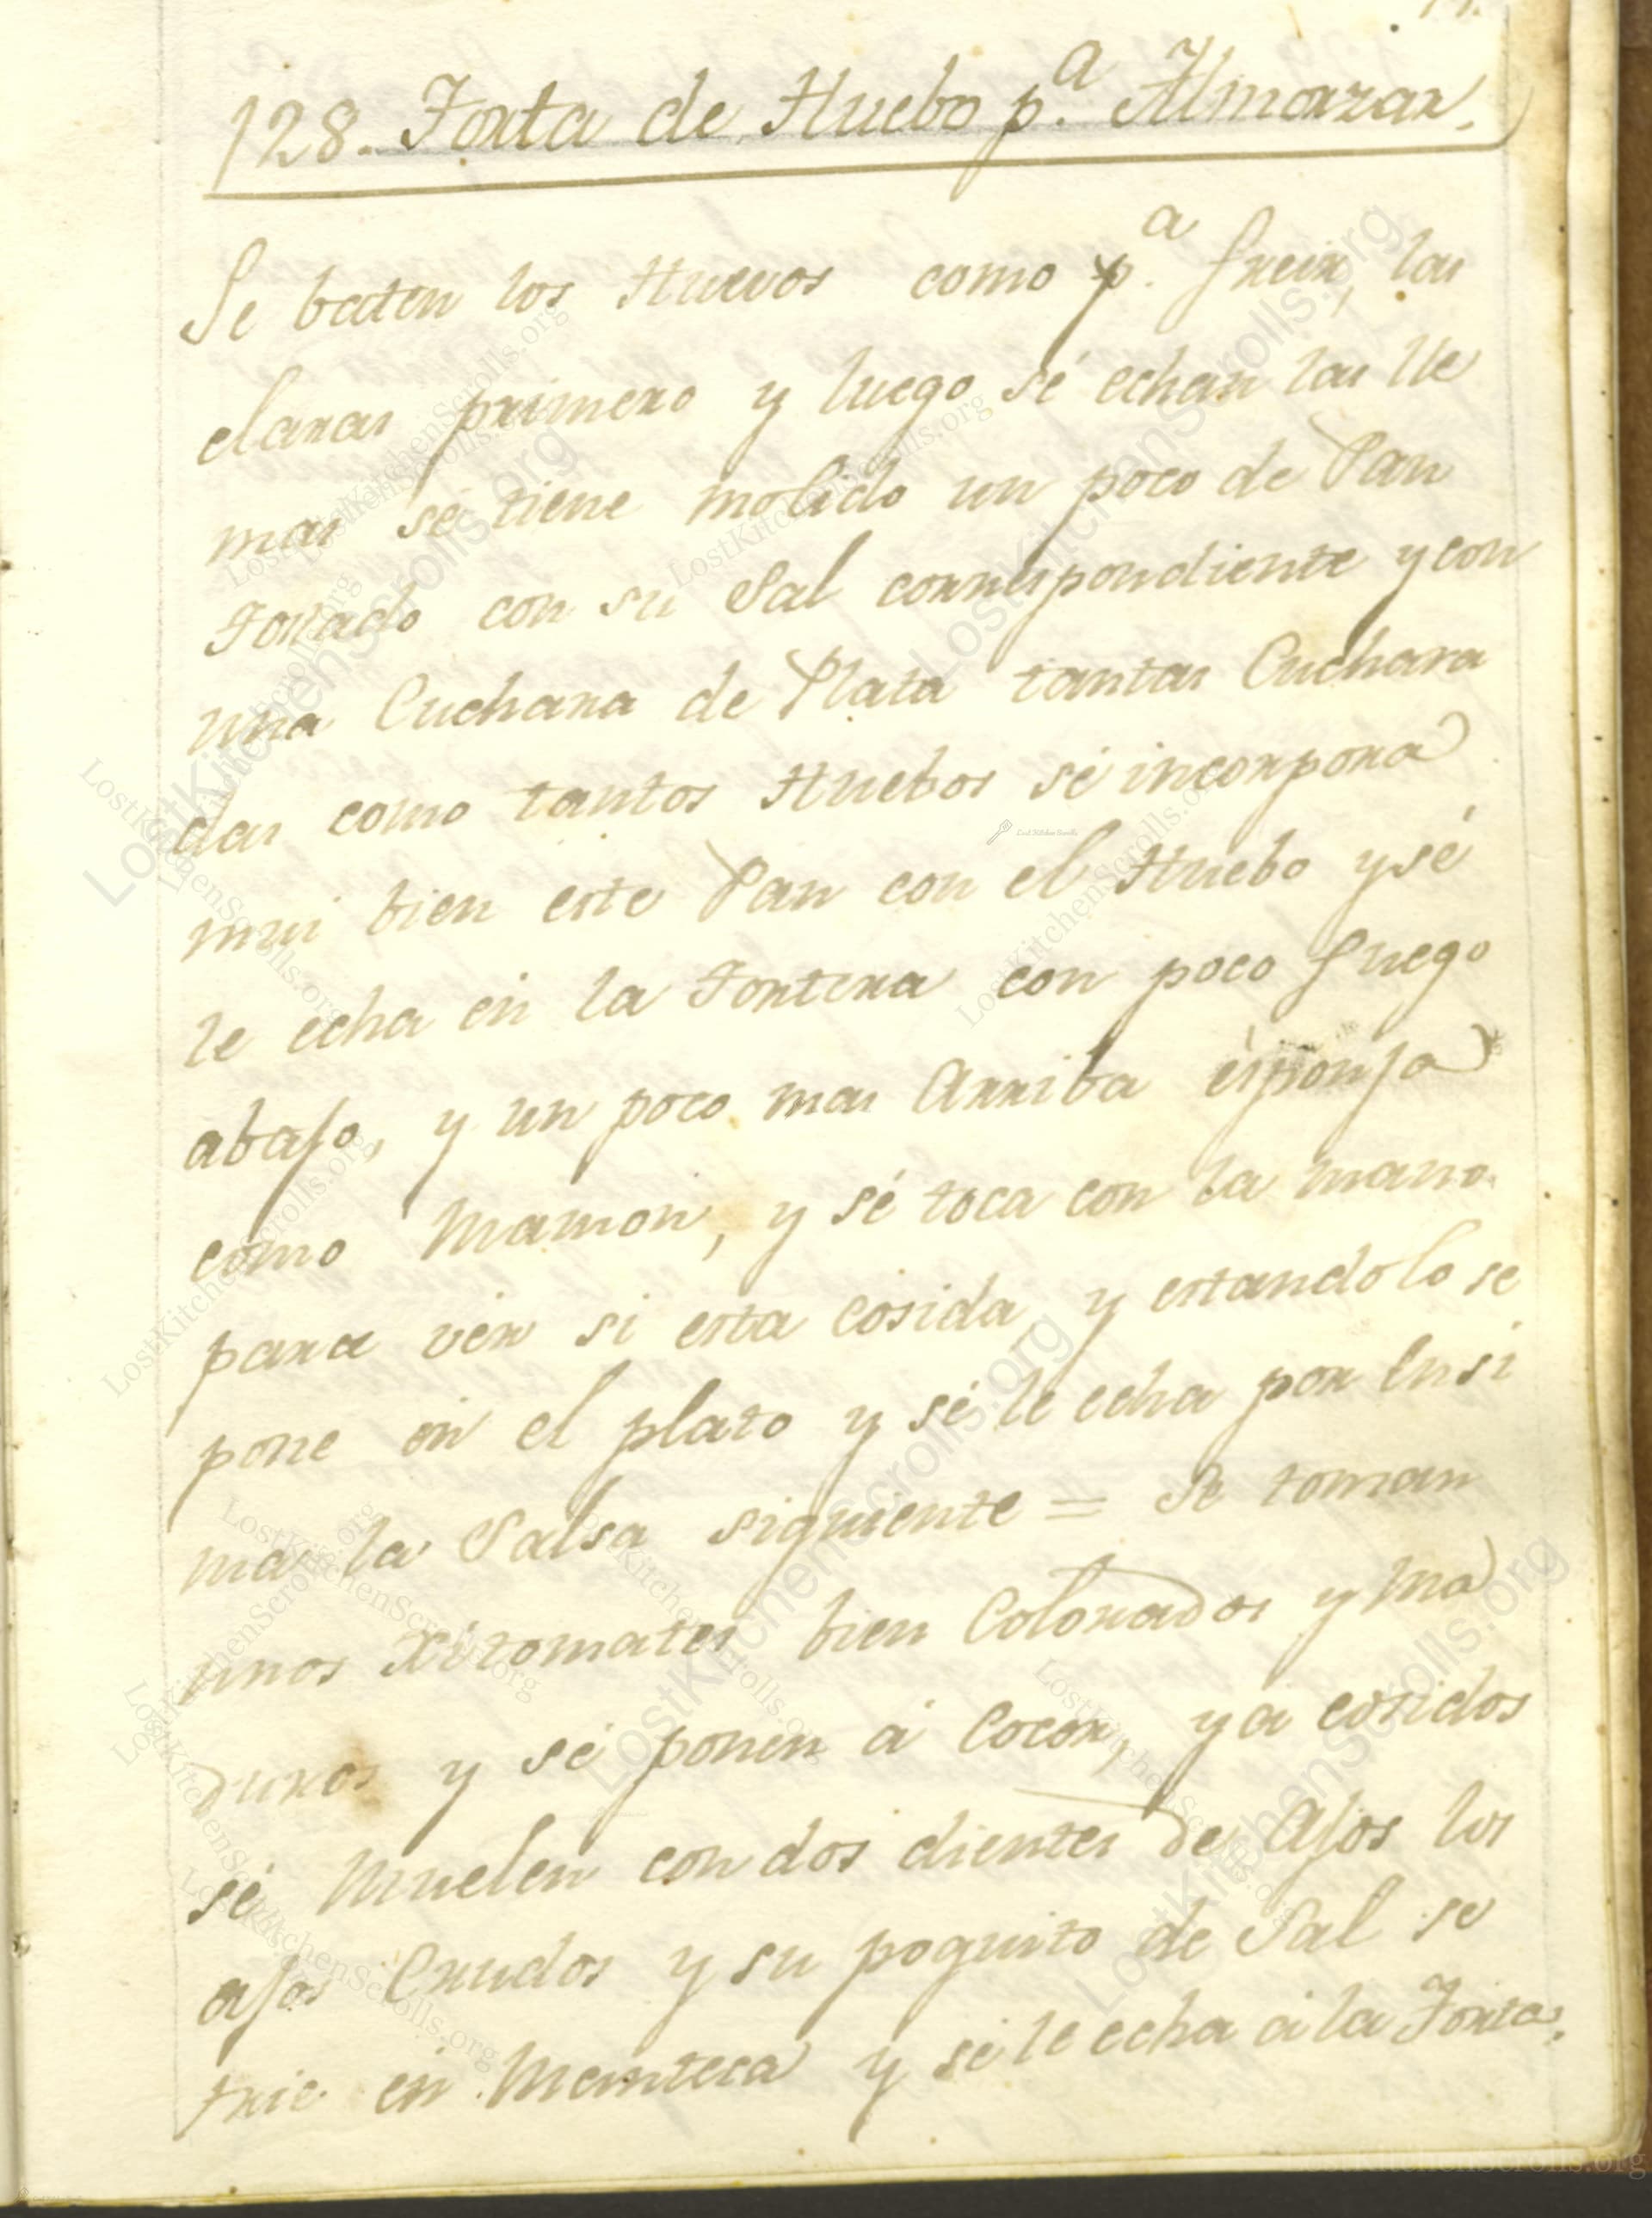 128. Torta de Huebo p.ª Almorzar.
Se baten los Huevos como p.ª freir, las
claras primero y luego sé echan las lle
mas sé tiene molido un poco de Pan
Tortado con su Sal correspondiente y con
una Cuchara de Plata tantas Cuchara
das como tantos Huebos sé incorpora
mui bien este Pan con el Huebo y sé
le echa en la Tortera con poco fuego
abajo, y un poco mas Arriba ésponja
como Mamon, y sé toca con la mano
para vér si esta cosida y estandolo se
pone en el plato y sé le echa por Ensi
ma la Salsa siguiente = Se toman
unos Xitomates bien Colorados y Ma
duros y sé ponen á Cocer, ya cosidos
sé Muelen con dos dientes de Ajos los
ajos Crudos y su poquito de Sal se
frie en Manteca y sé le echa á la Torta.